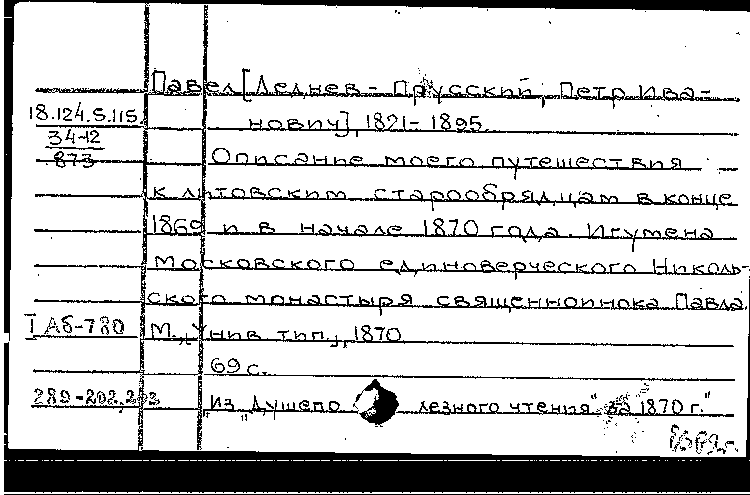 Павел [Леднев - Прусский, Петр Ива-
18.124.5.115.
нович], 1821-1895.
34-12
873
Описание моего путешествия
к литовским старообрядцам в конце
1869 и в начале 1870 года. Игумена
Московского единоверческого Николь-
ского монастыря священноинока Павла.
I Аб-780
М., Унив. тип., 1870
69 с.
289-202,203
Из "Душеполезного чтения" за 1870 г."